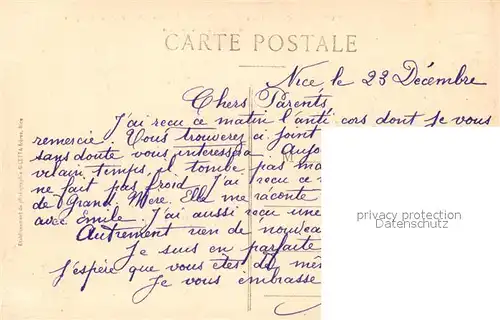 CARTE POSTALE
Nice le 23 Décembre
Chers Parents
J'ai reçu ce matin l'anti cors dont je vous
remercie. Vous trouverez ci joint
sans doute vous interessera. Aujo
vilain temps, il tombe pas ma
ne fait pas froid. J'ai reçu ce
de Grand Mère. Elle me raconte
avec Emile. J'ai aussi reçu une
Autrement rien de nouveau
Je suis en parfaite
J'espère que vous êtes de mê
Je vous embrasse
privacy protection
Datenschutz